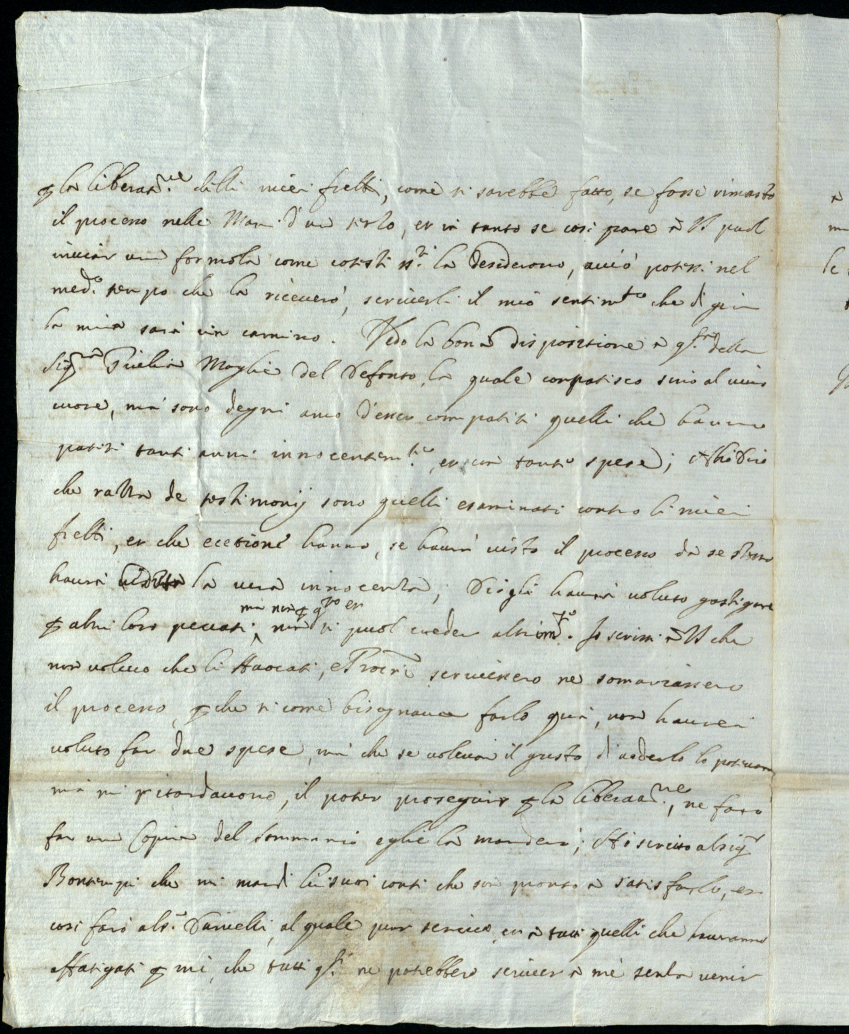 p la liberaz.ne delli miei frelli, come si sarebbe fatto, se fosse rimasto
il processo nelle Mani d'un terzo, et in tanto se così pare à VS puol
inviar una formola come cotesti ss.ri la desiderono, acciò potessi nel
med.o tempo che la riceverò, scriverli il mio sentim.to che di già
la mia sarà in camino. Vedo la bona disposizione à della
Sig.ra Moglie del Defonto, la quale compatisco sino al vivo
cuore, mà sono degni anco d'esser compatiti quelli che hanno
patiti tanti anni innocentem.te, et con tante spese;
che razza de testimonij sono quelli esaminati contro li miei
frelli, et che eccetione hanno, se havrà visto il processo da se stesso
havrà la vera innocenza; havrà voluto gastigare
p altri loro peccati, mà non p q.sto et
non si puol creder altrim.te. Io scrissi à VS che
non volevo che li Avocati, e Proc.ri scrivessero ne somariassero
il processo, p che si come bisognava farlo quà, non haverei
voluto far due spese, mà che se volevan il gusto di vederlo lo potevano
mà mi ritardavono, il poter proseguir p la liberaz.ne, ne farò
far una Copia del Sommario e glie la manderò; Hò scritto al sig.r
Bontempi che mi mandi li suoi conti che son pronto à satisfarlo, et
così farò al s.r Danielli, al quale pur scrivo, et à tutti quelli che havranno
affatigati p mè, che tutti q.sti ne potrebbero scriver à mè senza venir